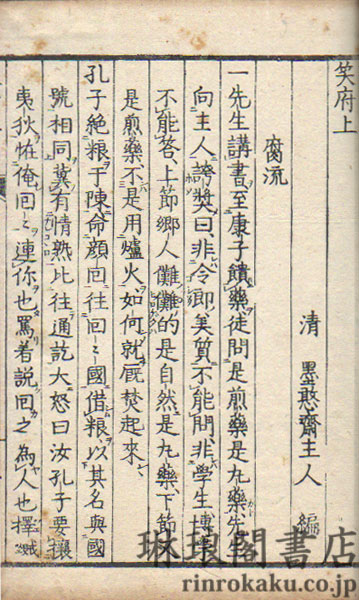 笑府上
清 墨憨齋主人 編
腐流
一先生講書至康子饋藥徒問是煎藥是丸藥先生
向主人誇奬曰非令郎美質不能問非學生博學
不能答、上節鄉人儺儺的是自然是丸藥下節又
是煎藥、不是用爐火、如何就厩焚起來、
孔子絕粮于陳命顔回往回〻國借粮、以其名與國
號相同冀有情熟比往通訖大怒曰汝孔子要攘
夷狄恠俺回〻連你也罵着說回之為人也擇賊
琳琅閣書店
rinrokaku.co.jp